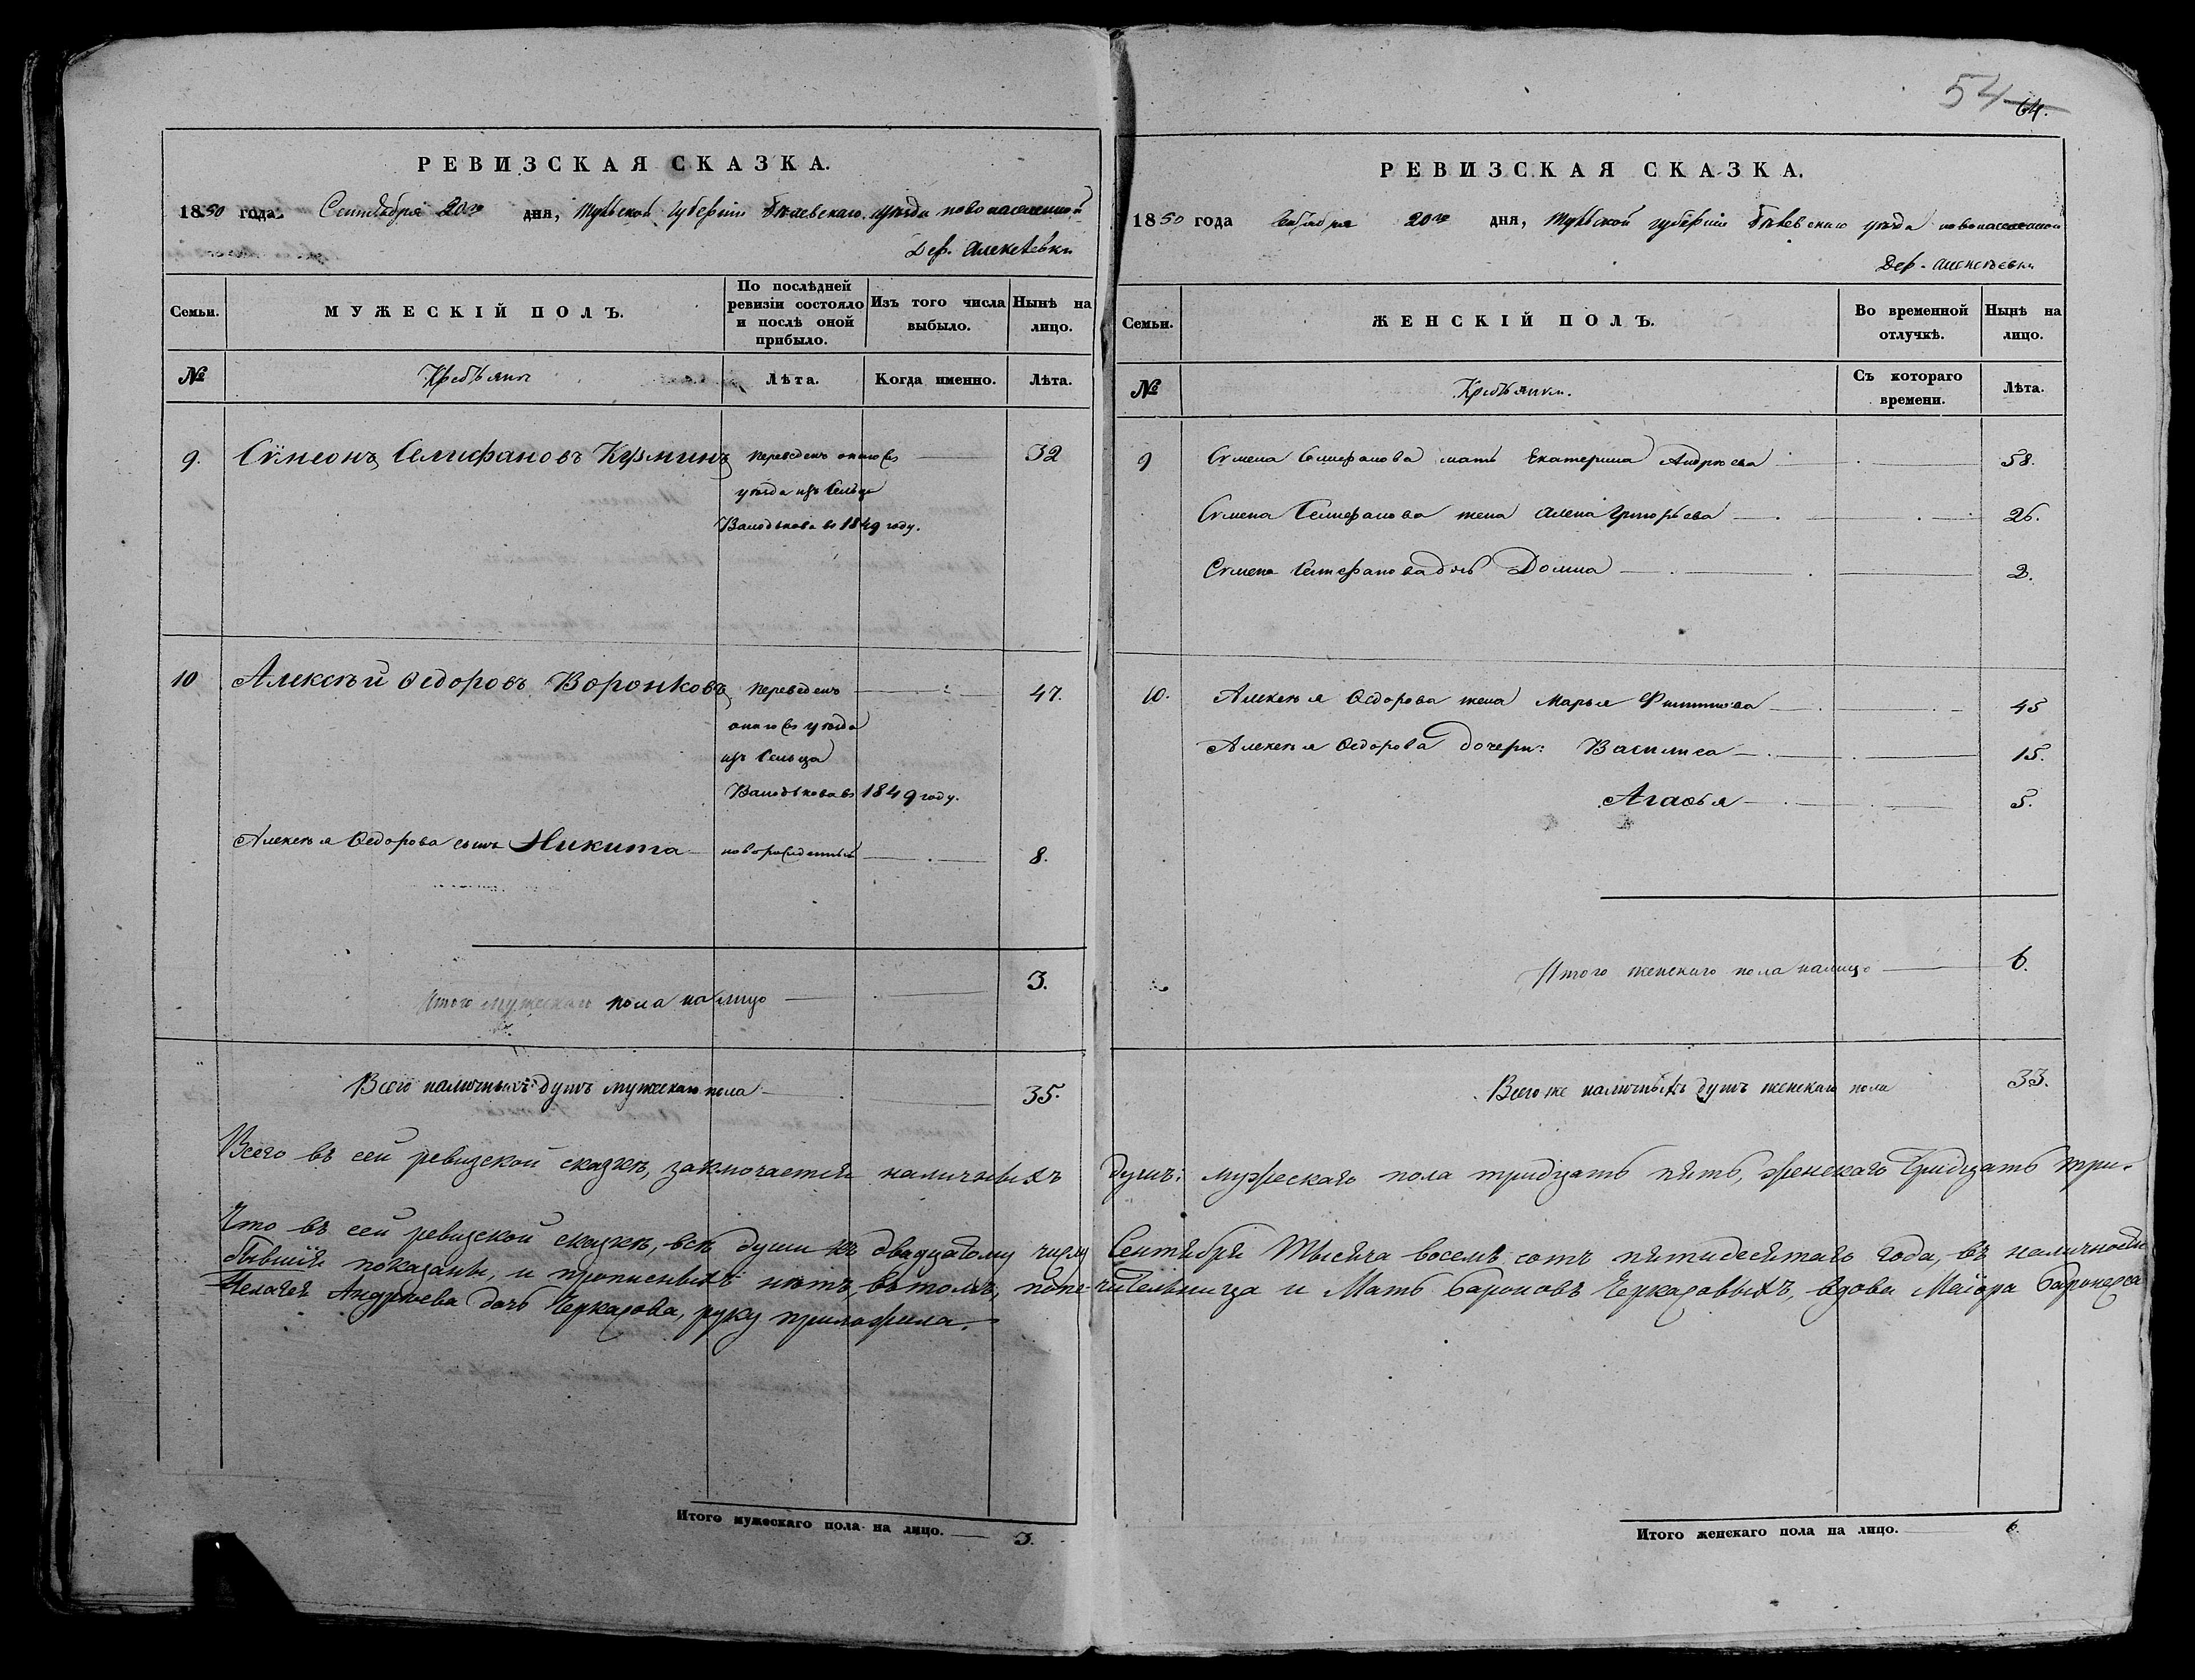 РЕВИЗСКАЯ СКАЗКА.
1850 года Сентября 20го дня, Тульской губернiи Бѣлевскаго уѣзда новонаселенной
Дер. Алексѣевки
Семьи.
МУЖЕСКІЙ ПОЛЪ.
По послѣдней ревизіи состояло и послѣ оной прибыло.
Изъ того числа выбыло.
Нынѣ на лицо.
№
Крестьяни
Лѣта.
Когда именно.
Лѣта.
9. Симеонъ Селифановъ Кузминъ переведенъ онаго же 32
уѣзда изъ Сельца
въ 1849 году.
10 Алексѣй Ѳедоровъ Воронковъ переведенъ 47.
онаго же уѣзда
изъ Сельца
1849 году.
Алексѣя Ѳедорова сынъ Никита новорожденный 8.
Итого мужескаго пола налицо 3.
Всего наличныхъ душъ мужескаго пола 35.
Итого мужескаго пола на лицо. 3.
54 64.
РЕВИЗСКАЯ СКАЗКА.
1850 года 20го дня, Тульской губернiи Бѣлевскаго уѣзда новонаселенной
Дер. Алексѣевки
Семьи.
ЖЕНСКІЙ ПОЛЪ.
Во временной отлучкѣ.
Нынѣ на лицо.
№
Крестьянки.
Съ котораго времени.
Лѣта.
9 Семена Селифанова мать Екатерина Андрѣева 58.
Семена Селифанова жена Алена Григорьева 26.
Семена Селифанова дочь Домна 2.
10. Алексѣя Ѳедорова жена Марья Филиппова 45
Алексѣя Ѳедорова дочери: Василиса 15.
Агаѳья 5.
Итого женскаго пола налицо 6.
Всего же наличныхъ душъ женскаго пола 33.
Всего въ сей ревизской сказкѣ, заключается наличныхъ душъ: мужескаго пола тридцать пять, женскаго тридцать три.
Что въ сей ревизской сказкѣ, всѣ души къ двадцатому числу Сентября тысяча восемь сотъ пятидесятаго года, въ наличности
бывшiе показаны, и прописныхъ нѣтъ, въ томъ, попечительница и Мать Бароновъ Черкасовыхъ, вдова Маiора Баронесса
Пелагея Андрѣева дочь Черкасова, руку приложила.
Итого женскаго пола на лицо. 6.